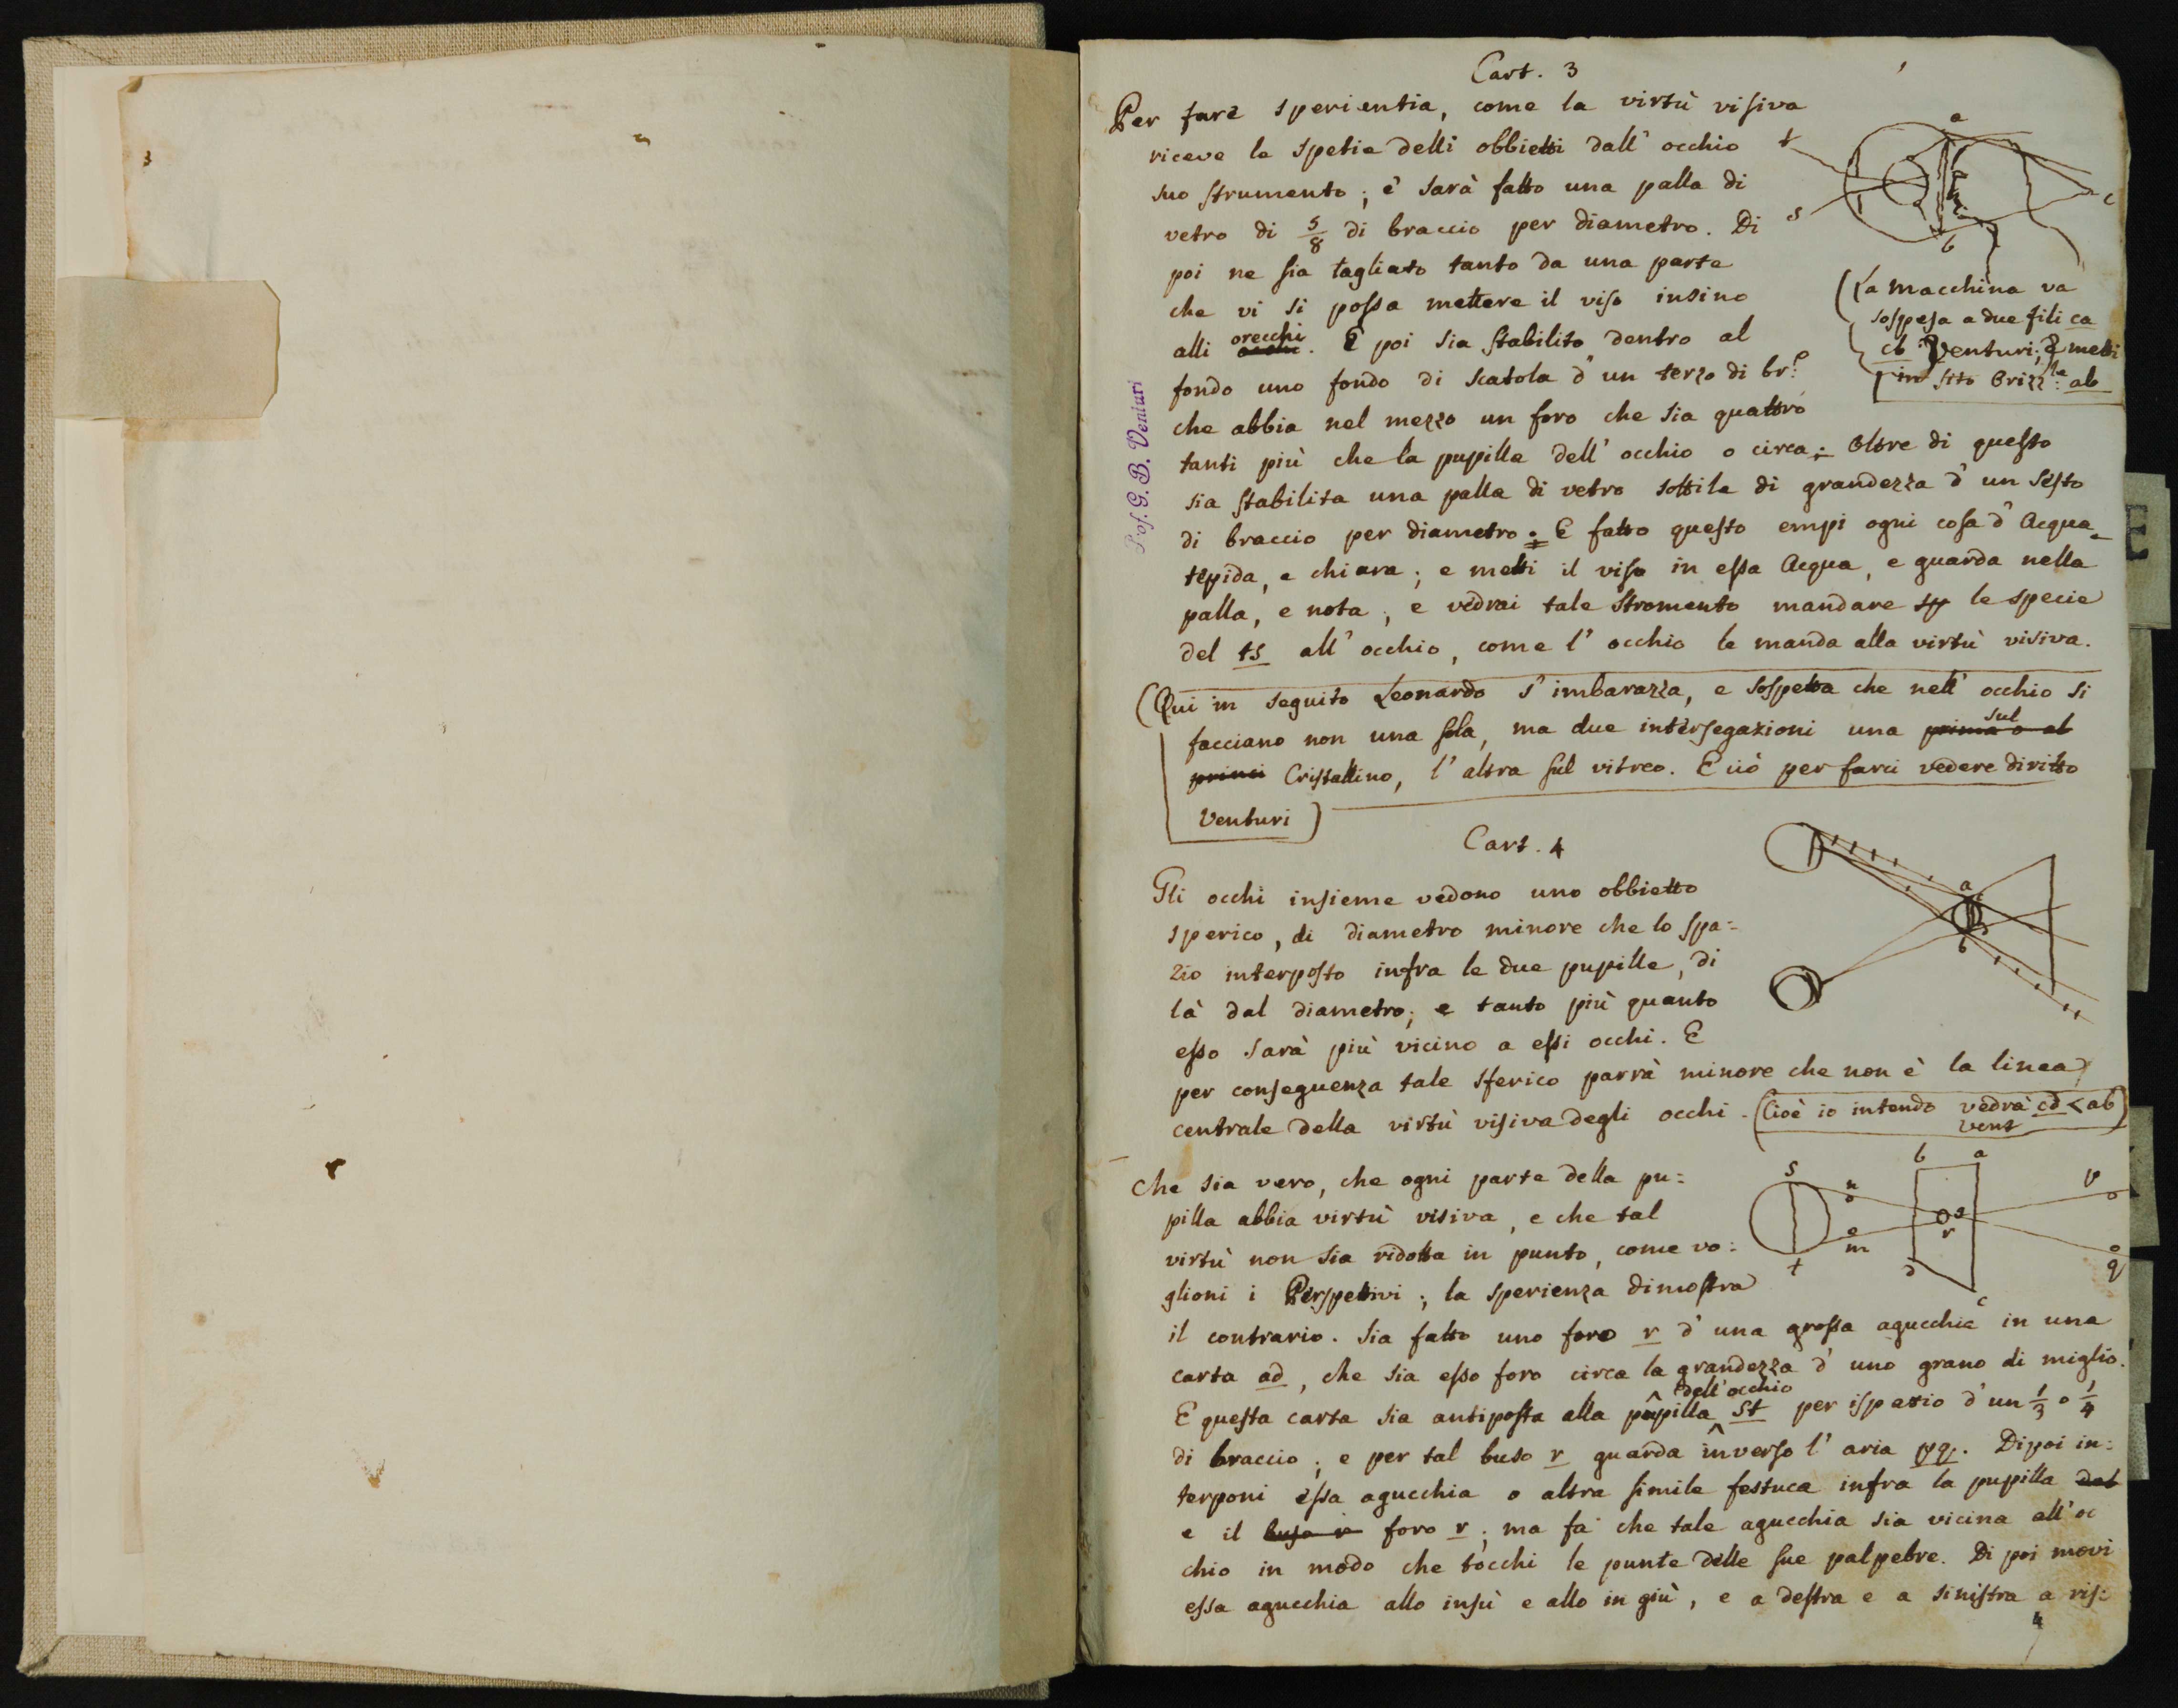 Cart. 3
Per fare sperientia, come la virtù visiva
riceve le spetie delli obbietti dall' occhio
suo strumento; e' sarà fatto una palla di
vetro di 5/8 di braccio per diametro. Di
poi ne sia tagliato tanto da una parte
che vi si possa mettere il viso insino
alli orecchi. E poi sia stabilito dentro al
fondo uno fondo di scatola d' un terzo di br.º
che abbia nel mezzo un foro che sia quattro
tanti più che la pupilla dell' occhio o circa; Oltre di questo
sia stabilita una palla di vetro sottile di grandezza d' un sesto
di braccio per diametro. E fatto questo empi ogni cosa d' Acqua
tepida, e chiara; e metti il viso in essa Acqua, e guarda nella
palla, e nota; e vedrai tale stromento mandare sp le specie
del ts all' occhio, come l' occhio le manda alla virtù visiva.
a
t
s
b
c
(La macchina va
sospesa a due fili ca
cb Venturi; e metti
in sito Orizz.le ab
Prof. G. B. Venturi
(Qui in seguito Leonardo s' imbarazza, e sospetta che nell' occhio si
facciano non una sola, ma due intersegazioni una prima o al sul
princi Cristallino, l' altra sul vitreo. E ciò per farci vedere diritto
Venturi)
Cart. 4
Gli occhi insieme vedono uno obbietto
sperico, di diametro minore che lo spa=
zio interposto infra le due pupille, di
là dal diametro; e tanto più quanto
esso sarà più vicino a essi occhi. E
per conseguenza tale sferico parrà minore che non è la linea
centrale della virtù visiva degli occhi. (Cioè io intendo vedrà cd < ab
Vent)
a
b
Che sia vero, che ogni parte della pu=
pilla abbia virtù visiva, e che tal
virtù non sia ridotta in punto, come vo=
glioni i Perspettivi; la sperienza dimostra
il contrario. Sia fatto uno foro r d' una grossa agucchia in una
carta ad, che sia esso foro circa la grandezza d' uno grano di miglio.
E questa carta sia antiposta alla pupilla dell' occhio st per ispazio d' un 1/3 o 1/4
di braccio; e per tal buso r guarda inverso l' aria pq. Dipoi in=
terponi essa agucchia o altra simile festuca infra la pupilla dal
e il buso r foro r; ma fa che tale agucchia sia vicina all' oc
chio in modo che tocchi le punte delle sue palpebre. Di poi movi
essa agucchia allo insù e allo in giù, e a destra e a sinistra a ris=
s
n
b
a
p
m
r
t
d
c
q
4